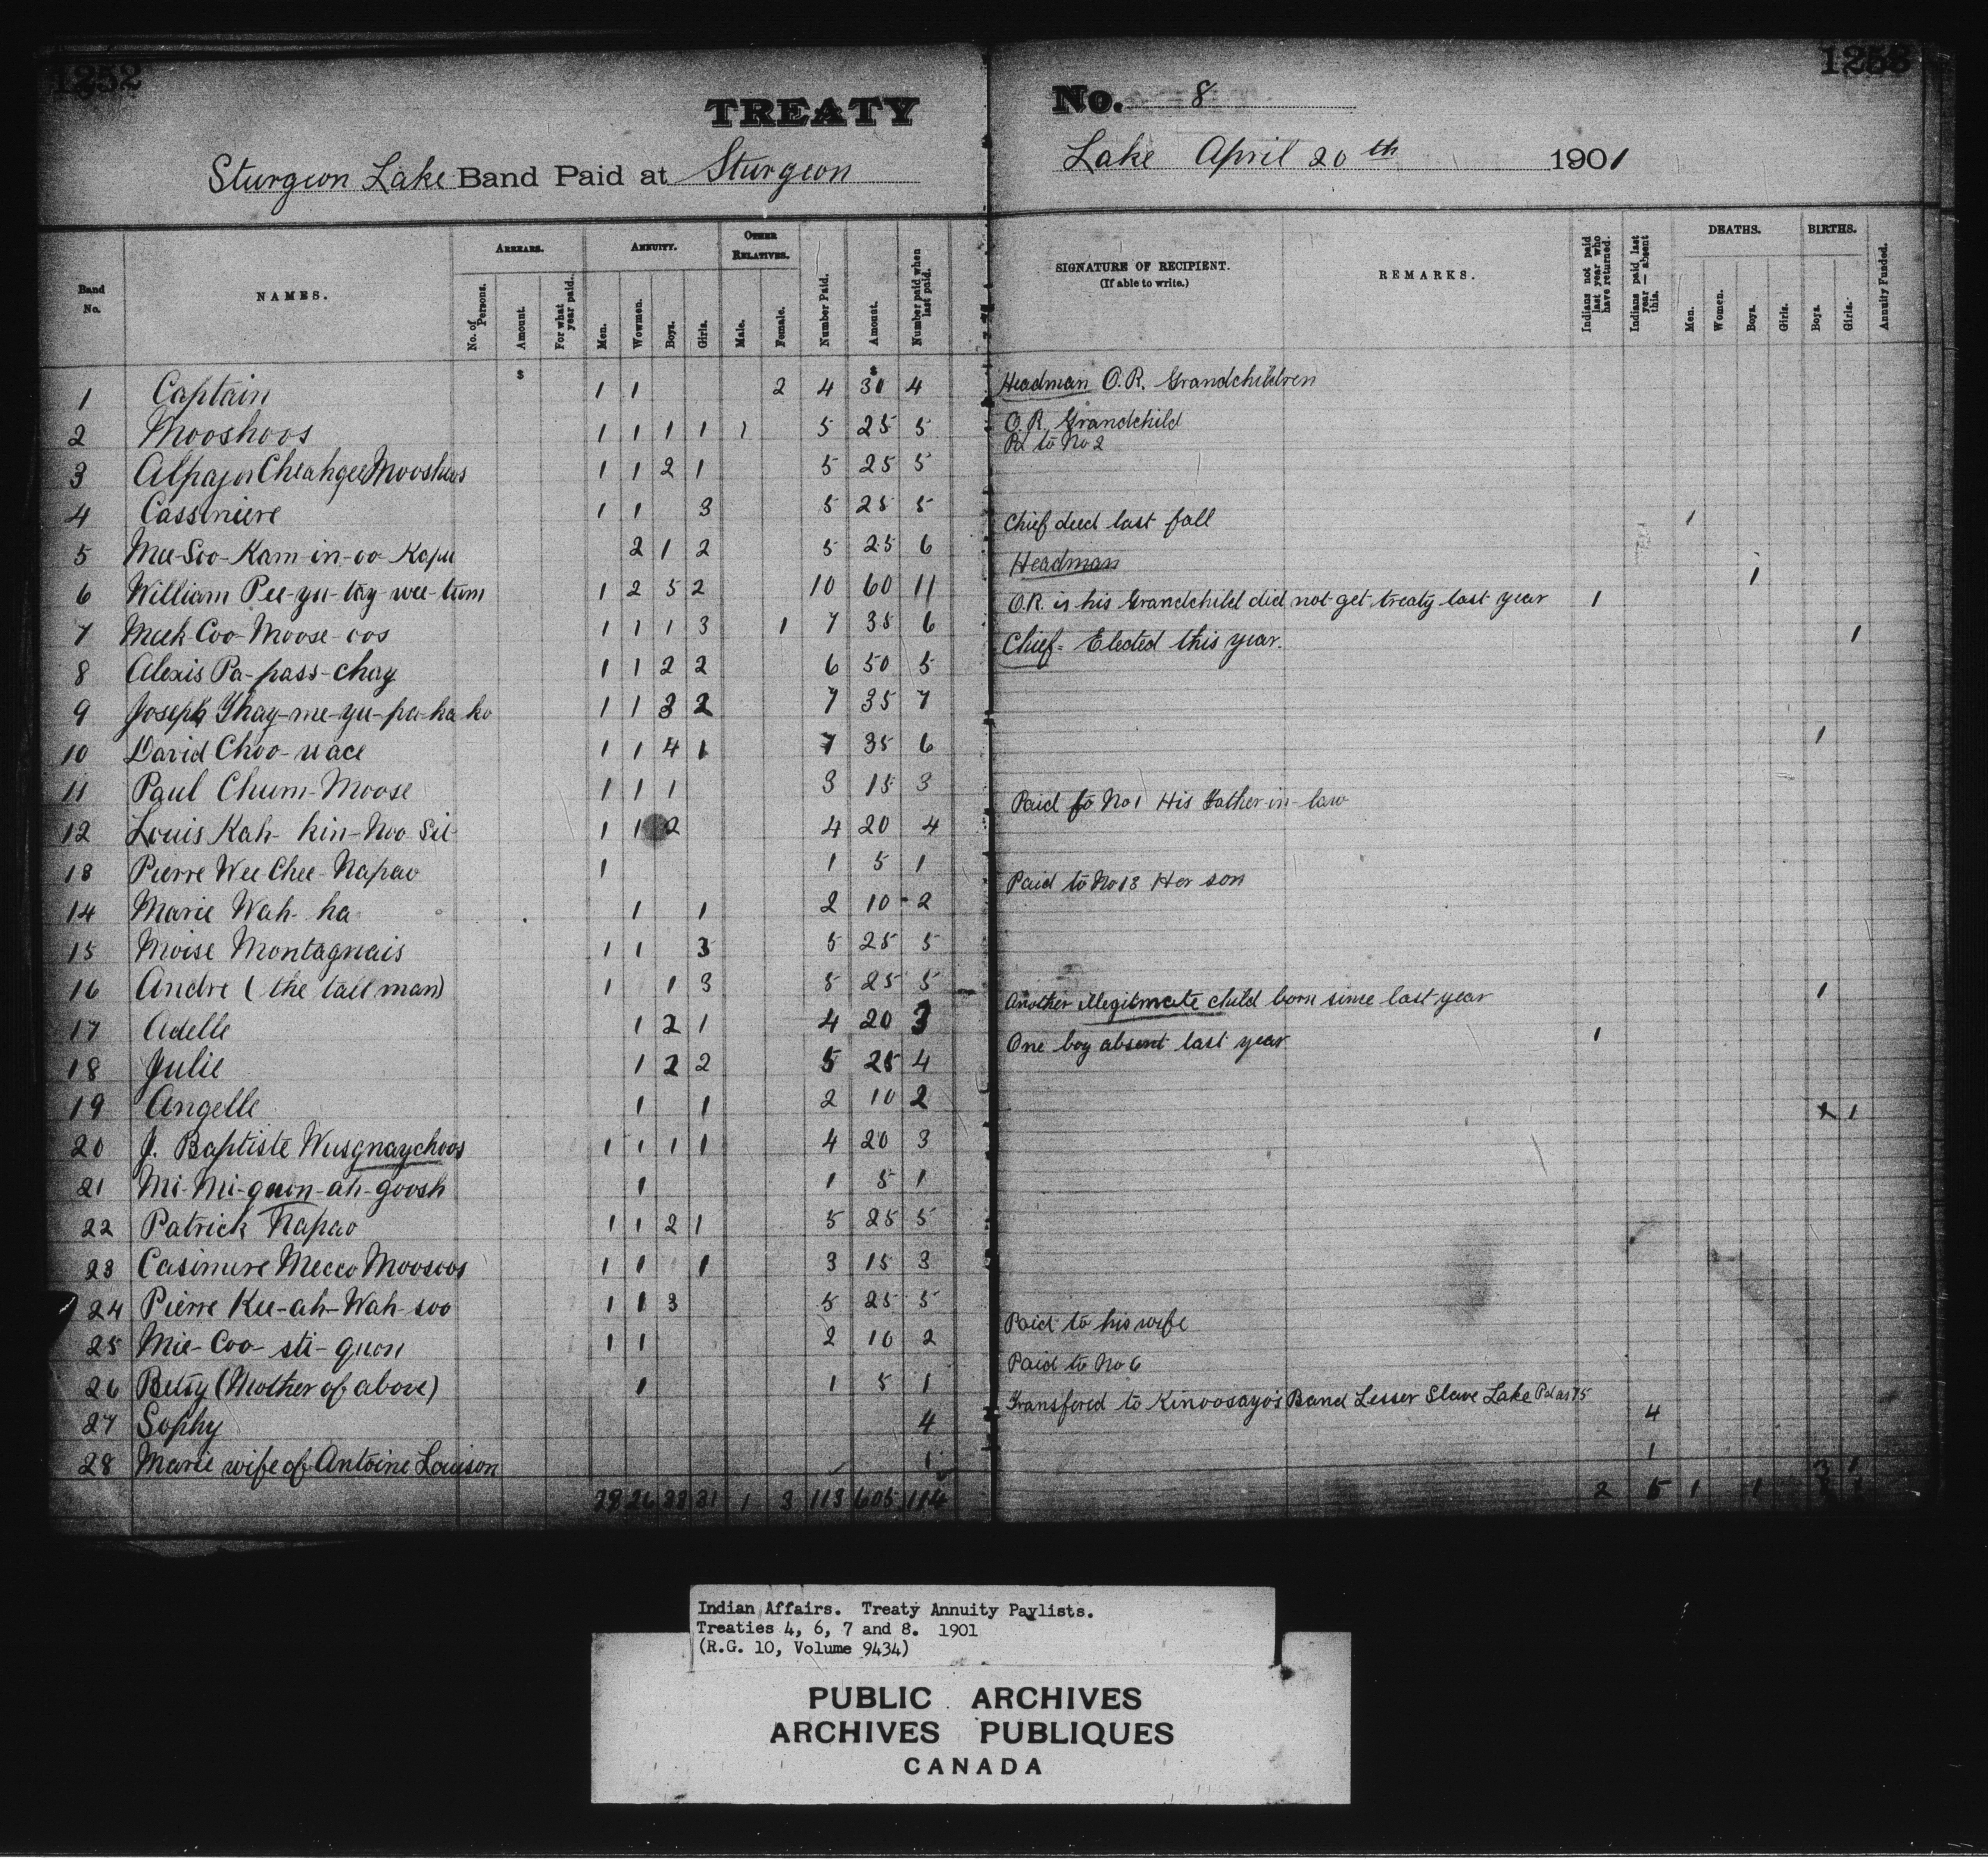 1252
1253
TREATY No. 8
Sturgeon Lake Band Paid at Sturgeon Lake April 20th 1901
Band No. NAMES. ARREARS. No. of Persons. Amount. For what year paid. ANNUITY. Men. Wowmen. Boys. Girls. OTHER RELATIVES. Male. Female. Number Paid. Amount. Number paid when last paid. SIGNATURE OF RECIPIENT. (If able to write.) REMARKS. Indians not paid last year who have returned. Indians paid last year — absent this. DEATHS. Men. Women. Boys. Girls. BIRTHS. Boys. Girls. Annuity Funded.
$ $
1 Captain 1 1 2 4 30 4 Headman O.R. Grandchildren
2 Mooshoos 1 1 1 1 1 5 25 5 O.R. Grandchild
Pd to No 2
3 Alpajor Cheahgee Mooshoos 1 1 2 1 5 25 5
4 Cassimere 1 1 3 5 25 5
Chief died last fall 1
5 Mee-Soo-Kam-in-oo-Kapu 2 1 2 5 25 6
Headman 1
6 William Pee-yu-tay-wee-tum 1 2 5 2 10 60 11
O.R. is his Grandchild did not get treaty last year 1
7 Meek-Coo-Moose-oos 1 1 1 3 1 7 35 6
Chief - Elected this year. 1
8 Alexis Pa-pass-chay 1 1 2 2 6 50 5
9 Joseph Thay-me-yu-pa-ha-ko 1 1 3 2 7 35 7
10 David Choo-uace 1 1 4 1 7 35 6 1
11 Paul Chum-Moose 1 1 1 3 15 3
Paid to No 1 His Father-in-law
12 Louis Kah-kin-Noo-Sit 1 1 2 4 20 4
13 Pierre Wee Chee-Napao 1 1 5 1
Paid to No 13 Her son
14 Marie Wah-ha 1 1 2 10 2
15 Moise Montagnais 1 1 3 5 25 5
16 Andre (the tall man) 1 1 3 5 25 5
Another illegitmate child born since last year 1
17 Adelle 1 2 1 4 20 3
One boy absent last year 1
18 Julie 1 2 2 5 25 4
19 Angelle 1 1 2 10 2
1
20 J. Baptiste Wusgnaychoos 1 1 1 1 4 20 3
21 Mi-Mi-guon-ah-goosh 1 1 5 1
22 Patrick Napao 1 1 2 1 5 25 5
23 Casimere Mecco Moosoos 1 1 1 3 15 3
24 Pierre Kee-ah-Wah-soo 1 1 3 5 25 5
Paid to his wife
25 Mie-Coo-sti-guon 1 1 2 10 2
Paid to No 6
26 Betsy (Mother of above) 1 1 5 1
Transfered to Kinoosayo's Band Lesser Slave Lake Pd as 75
27 Sophy 4 4
28 Marie wife of Antoine Louison 1 1
26 31 1 3 113 605 114 2 5 1 1
Indian Affairs. Treaty Annuity Paylists.
Treaties 4, 6, 7 and 8. 1901
(R.G. 10, Volume 9434)
PUBLIC ARCHIVES
ARCHIVES PUBLIQUES
CANADA